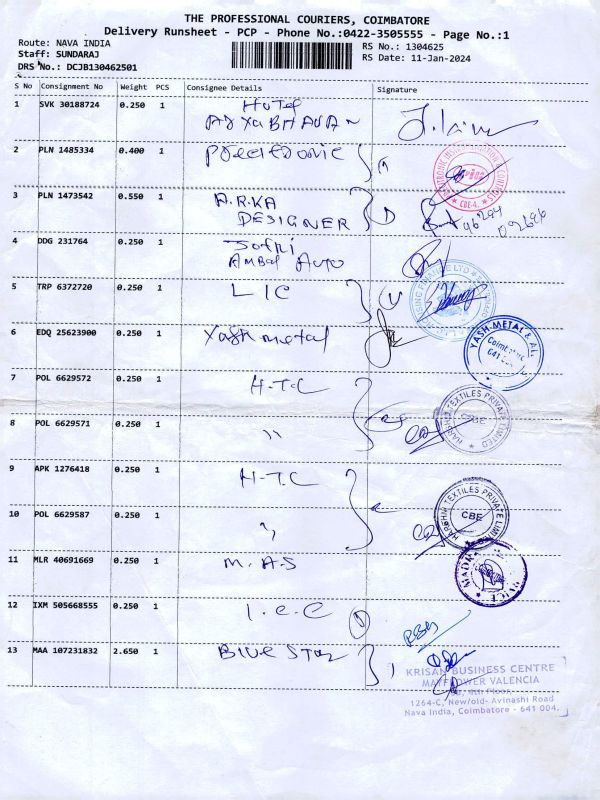 THE PROFESSIONAL COURIERS, COIMBATORE
Delivery Runsheet - PCP - Phone No.:0422-3505555 - Page No.:1
Route: NAVA INDIA
Staff: SUNDARAJ
DRS No.: DCJB130462501
RS No.: 1304625
RS Date: 11-Jan-2024
S No Consignment No Weight PCS Consignee Details Signature
1 SVK 30188724 0.250 1 Hotel
ARYABHAVAN
2 PLN 1485334 0.400 1
3 PLN 1473542 0.550 1 A.R.KA
DESIGNER
4 DDG 231764 0.250 1
Ambal Auto
5 TRP 6372720 0.250 1 LIC
6 EDQ 25623900 0.250 1 Yash metal
YASH METAL & AL
Coimbatore
641
7 POL 6629572 0.250 1 H.T.C
8 POL 6629571 0.250 1 ,,
HARSHNI TEXTILES PRIVATE LIMITED
CBE
9 APK 1276418 0.250 1 H.T.C
10 POL 6629587 0.250 1 ,,
HARSHNI TEXTILES PRIVATE LIMI
CBE
11 MLR 40691669 0.250 1 M.A.S
12 IXM 505668555 0.250 1 I.C.C
13 MAA 107231832 2.650 1 Blue Star
KRISAN BUSINESS CENTRE
MAYFLOWER VALENCIA
4th Floor,
1264-C, New/old- Avinashi Road
Nava India, Coimbatore - 641 004.